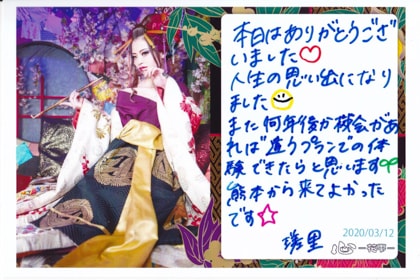 本日はありがとうござ
いました♡
人生の思い出になり
ました
また何年後か機会があ
れば違うプランでの体
験できたらと思います
熊本から来てよかった
です☆
2020/03/12